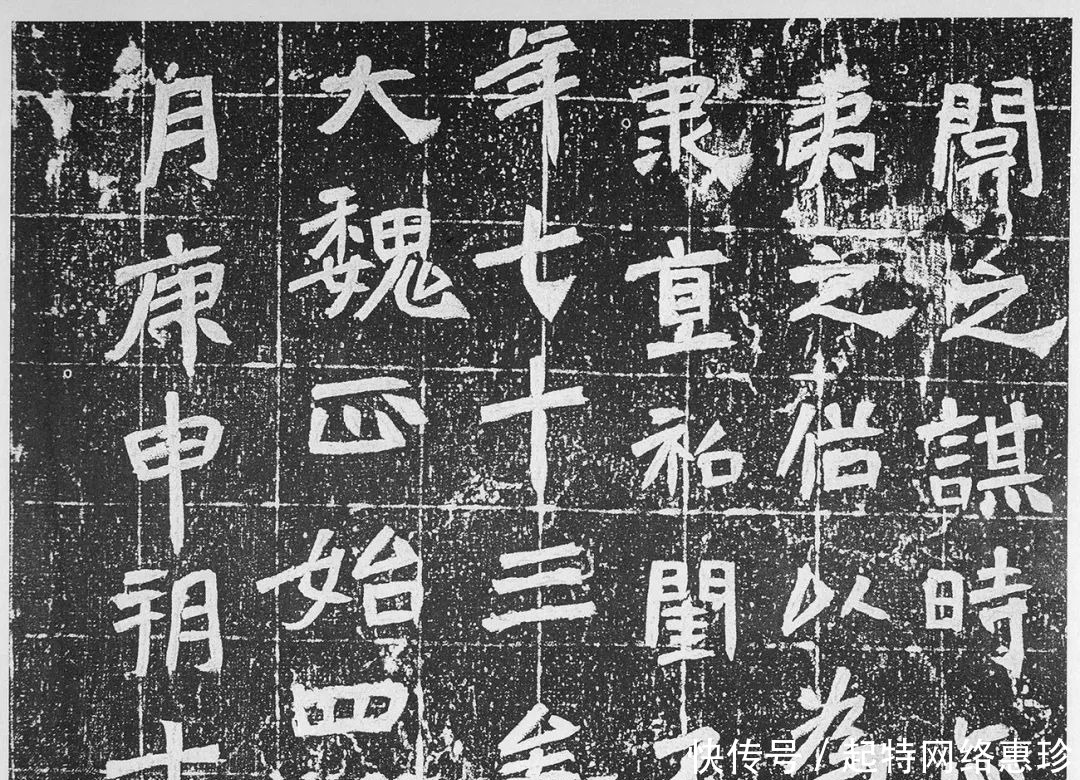 開之謀時
夷之俗以為
直閨
年七十三
大魏正始四
月庚申朔十
快传号 / 起特网络惠珍